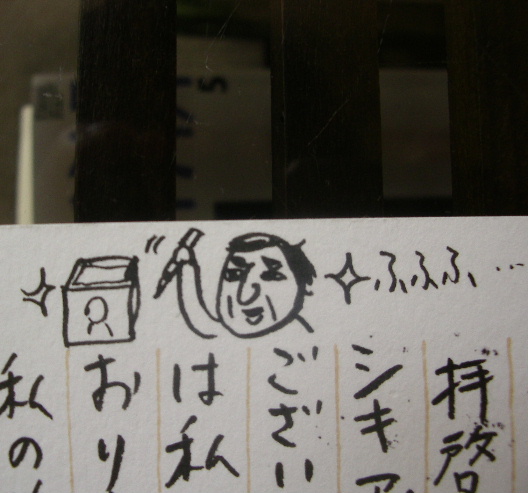 ふふふ…
拝啓
シキア
ござい
は私
おり
私の